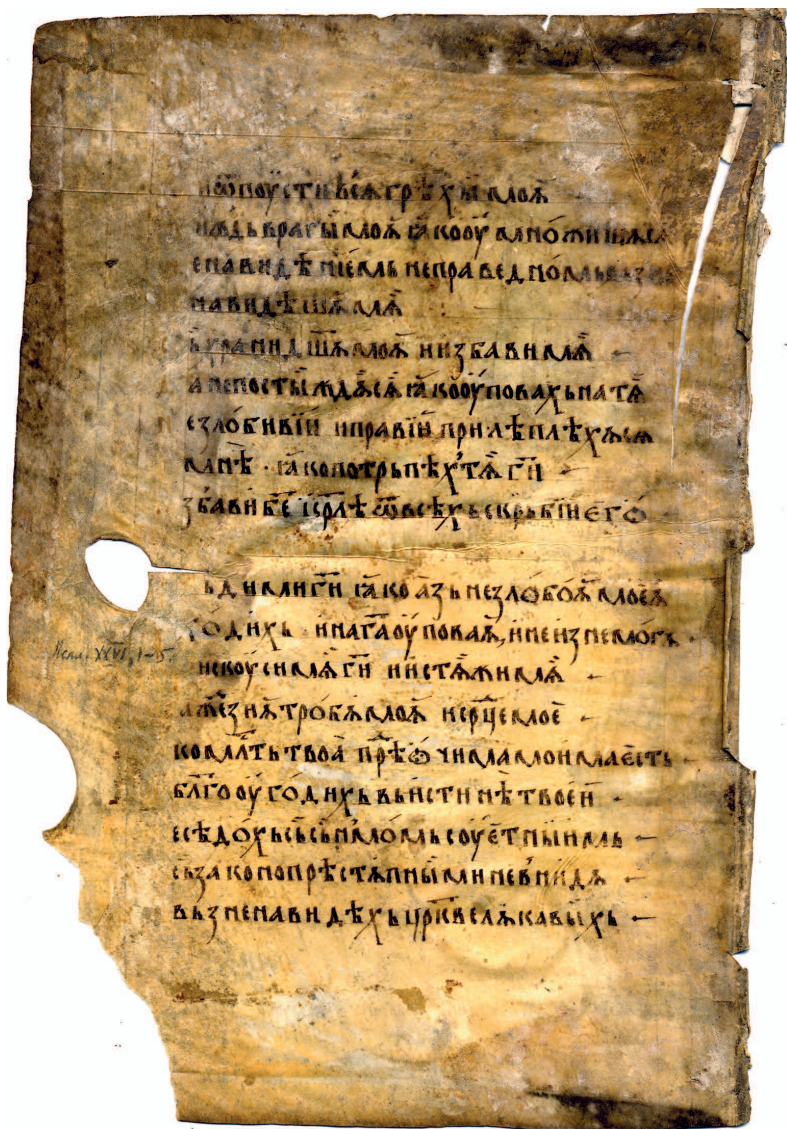 и ѿпоусти всѧ грѣхы моѫ
виждь врагы моѫ ꙗко оумножишѫсѧ
енавидѣнїемь неправедномь възне
навидѣшѫ мѧ
ъхрани дш҃ѫ моѫ и избави мѧ
а непостыждѫсѧ ꙗко оуповахь на тѧ
езлобивїи и правїи прилѣплѣхѫсѧ
мнѣ · ꙗко потрьпѣх тѧ г҃и
збави б҃е ії҃слѣ ѿ всѣхь скрьбїи его
ѫди ми г҃и ꙗко азь незлобоѫ моеѧ
ходихь · и на г҃а оуповаѫ, и не изнемогѫ
искоуси мѧ г҃и и истѧжи мѧ
ажѕи ѫтробѫ моѫ и ср҃це мое
ко мл҃ть твоа прѣⷣ очима моима есть
бл҃гооугодихь вь истинѣ твоеи
е сѣдохь сь сьнмомь соуетныимь
сь законопрѣстѫпными не вниидѫ
възненавидѣхь цр҃квеѫ лѫкавыхь
Псал. XXVI, 1–5.